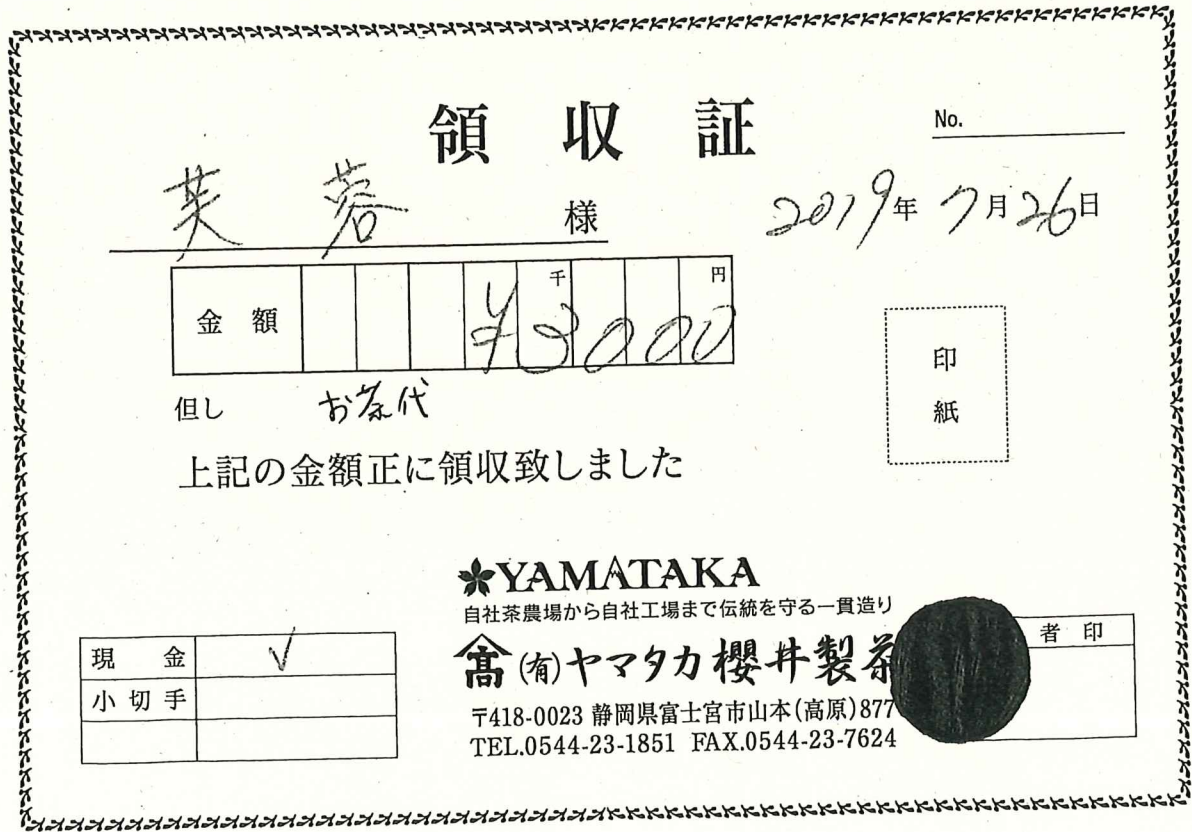 領収証
No.
芙蓉 様
2019年 7月 26日
金額 千 円
¥3000
但し お茶代
印紙
上記の金額正に領収致しました
YAMATAKA
自社茶農場から自社工場まで伝統を守る一貫造り
高 (有)ヤマタカ櫻井製茶
〒418-0023 静岡県富士宮市山本(高原)877
TEL.0544-23-1851 FAX.0544-23-7624
現金 V
小切手
者印